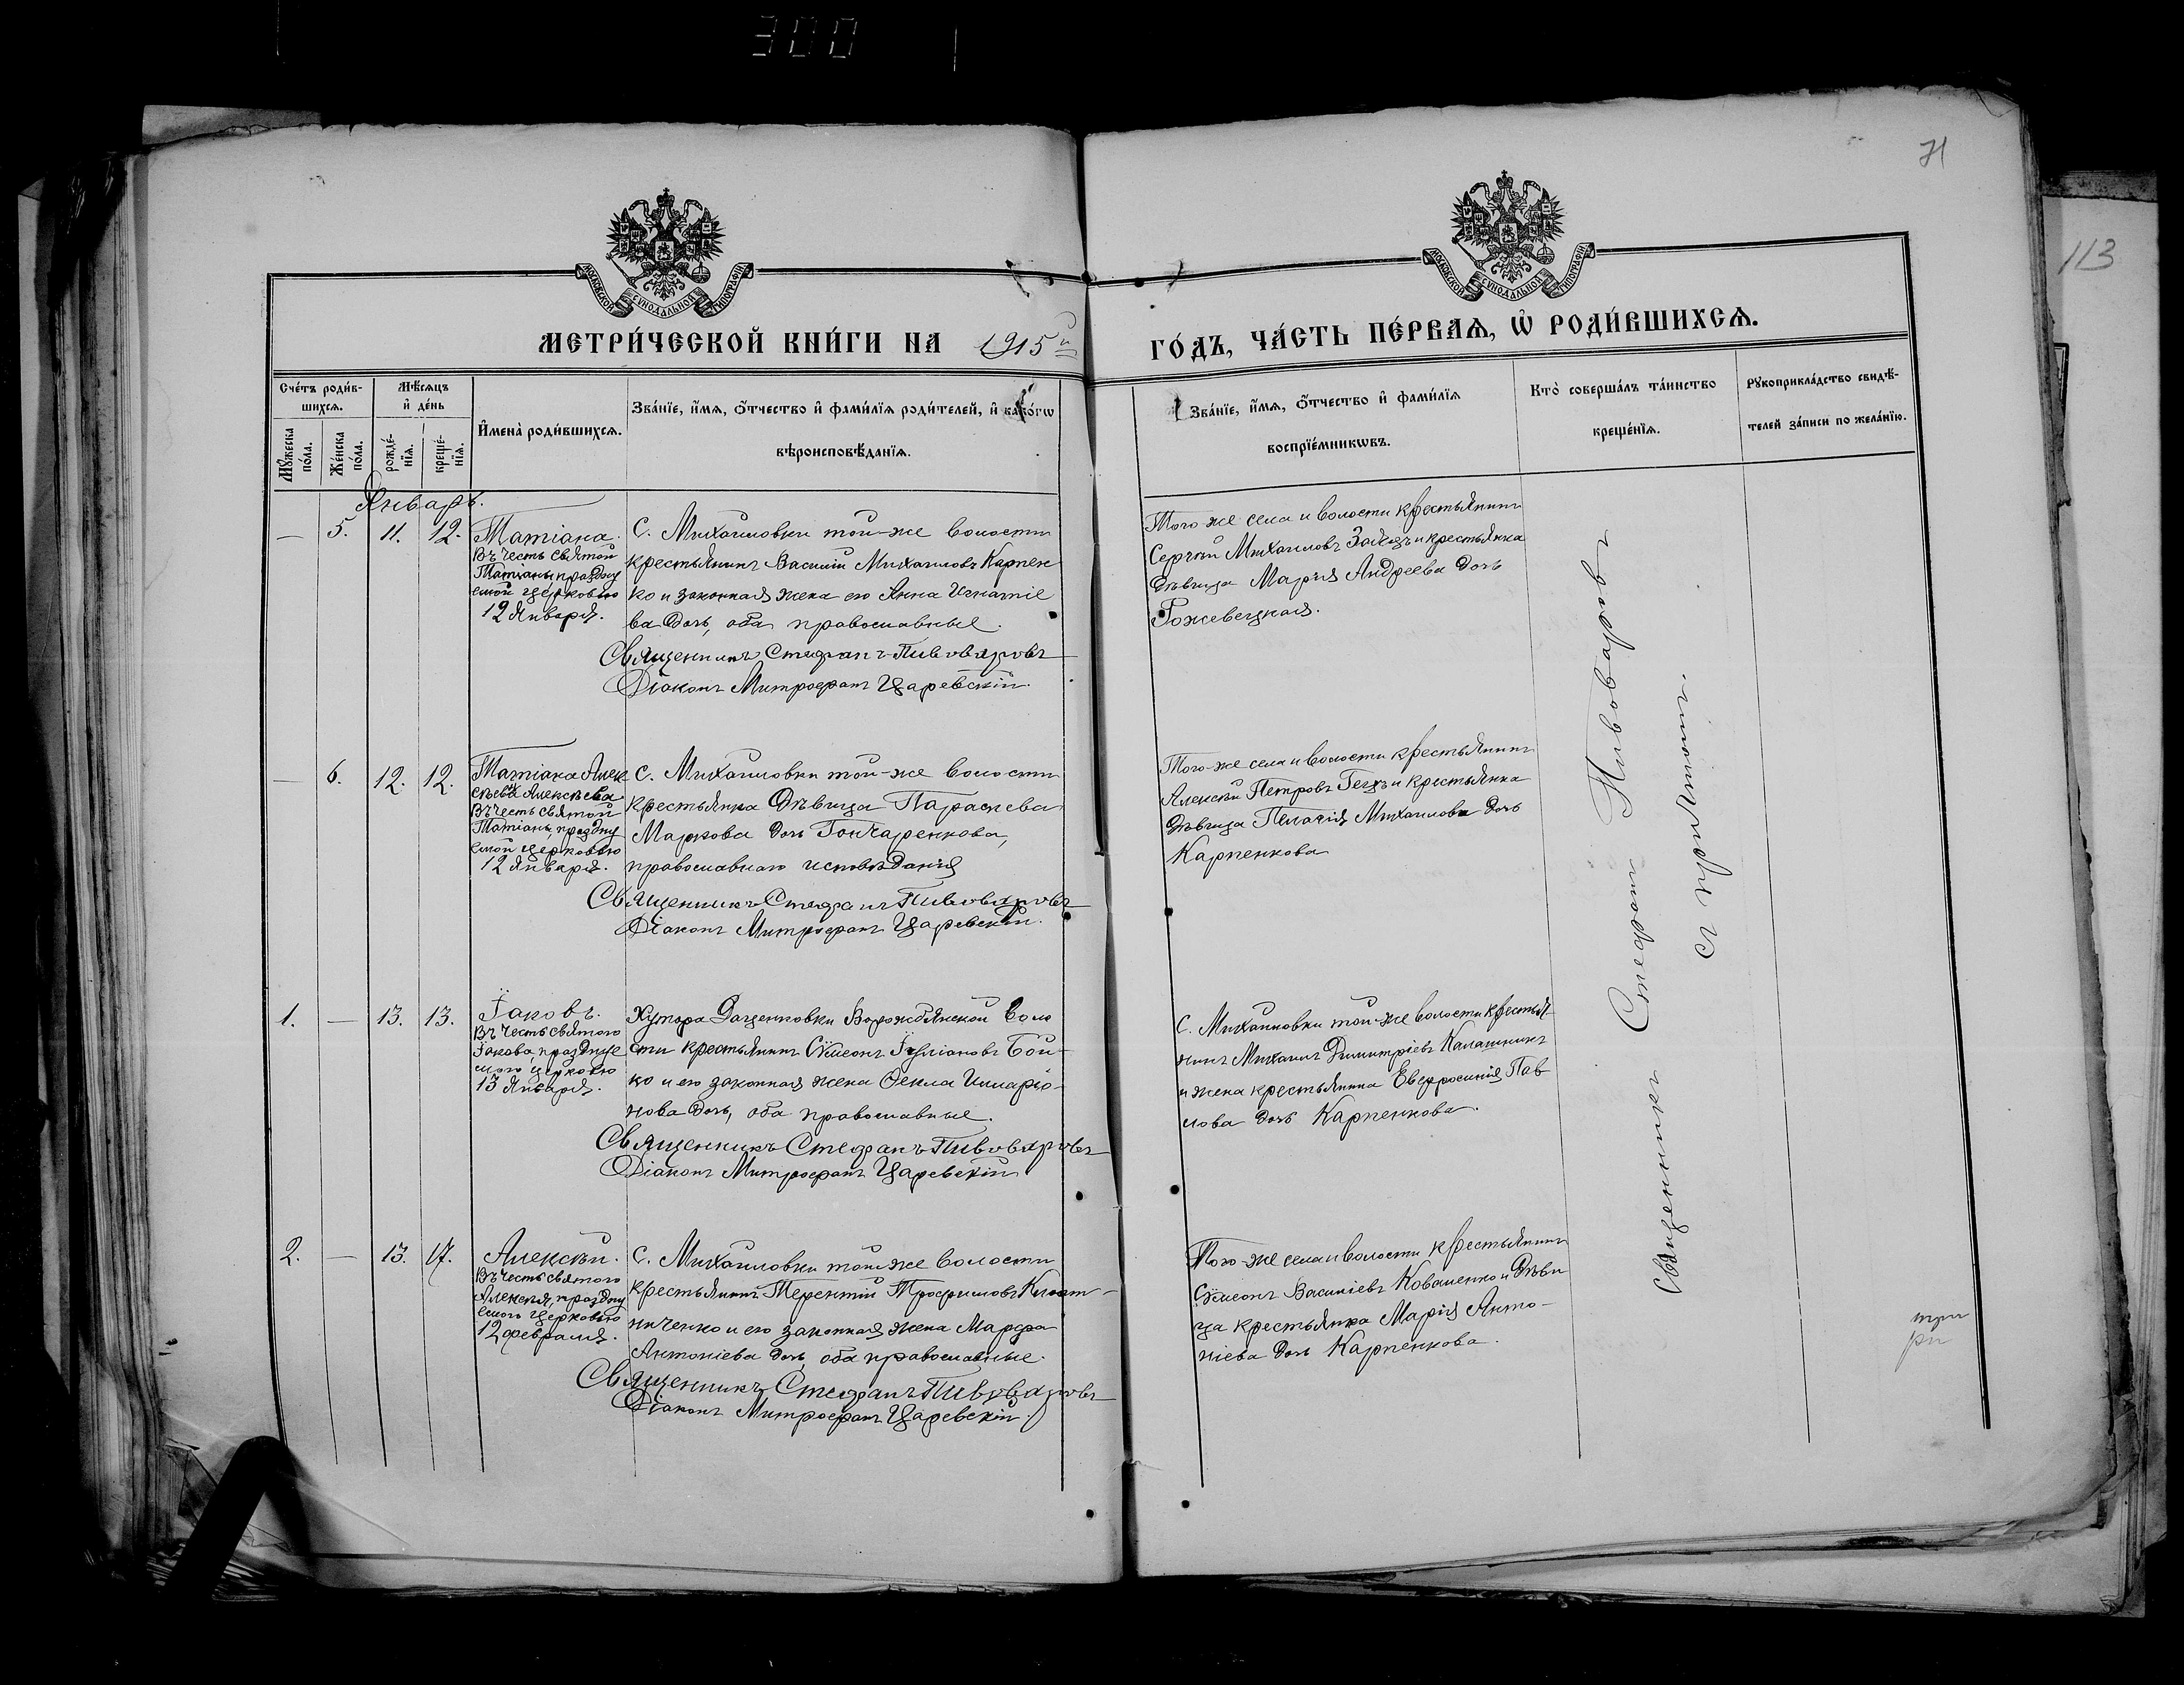 300
71
113
МОСКОВСКОЙ СУНОДАЛЬНОЙ ТИПОГРАФІИ
МОСКОВСКОЙ СУНОДАЛЬНОЙ ТИПОГРАФІИ
МЕТРИ́ЧЕСКОЙ КНИ́ГИ НА 1915й
ГО́ДЪ, ЧА́СТЬ ПЕ́РВАѦ, Ѽ РОДИ́ВШИХСѦ.
Сче́тъ роди́в-
шихсѧ.
Мѣ́сѧцъ
и҆ де́нь
Мꙋ́жеска по́ла.
Же́нска по́ла.
рожде́-
нїѧ.
креще́-
нїѧ.
И҆мена̀ роди́вшихсѧ.
Зва́нїе, и҆́мѧ, ѻ҆́тчество и҆ фами́лїѧ роди́телей, и҆ како́гѡ
вѣроисповѣ́данїѧ.
Зва́нїе, и҆́мѧ, ѻ҆́тчество и҆ фами́лїѧ
воспрїе́мникѡвъ.
Кто̀ соверша́лъ та́инство
креще́нїѧ.
Рꙋкоприкла́дство свидѣ́-
телей за́писи по жела́нїю.
Январь.
— 5. 11. 12.
Татіана.
Въ честь святой
Татіаны праздну
емой церковью
12 Января.
С. Михайловки той-же волости
крестьянинъ Василій Михаиловъ Карпен
ко и законная жена его Анна Игнатіе
ва дочь, оба православные.
Священникъ Стефанъ Пивоваровъ
Діаконъ Митрофанъ Царевскій.
Того-же села и волости крестьянинъ
Сергѣй Михаиловъ и крестьянка
дѣвица Марія Андреева дочь
— 6. 12. 12.
Татіана Алек
сѣева Алексѣева
Въ честь святой
Татіаны, праздну
емой церковью
12 Января.
С. Михайловки той-же волости
крестьянка дѣвица Параскева
Маркова дочь Гончаренкова,
православнаго исповѣданія
Священникъ Стефанъ Пивоваровъ
Діаконъ Митрофанъ Царевскій.
Того-же села и волости крестьянинъ
Алексѣй Петровъ и крестьянка
дѣвица Пелагія Михаилова дочь
Карпенкова
1. — 13. 13.
Іаковъ.
Въ честь святого
Іакова, празднуе
мого церковью
13 Января.
Хутора Даценковки Ворожбянской воло
сти крестьянинъ Сѵмеонъ Іуліановъ Бой-
ко и его законная жена Ѳекла Иларіо-
нова дочь, оба православные.
Священникъ Стефанъ Пивоваровъ
Діаконъ Митрофанъ Царевскій
С. Михайловки той-же волости крестья-
нинъ Михаилъ Димитріевъ Калашникъ
и жена крестьянина Евфросинія Пав
лова дочь Карпенкова.
2. — 13. 17.
Алексѣй.
Въ честь святого
Алексія, праздну
емого церковью
12 февраля.
С. Михайловки той-же волости
крестьянинъ Терентій Трофимовъ
ниченко и его законная жена Марфа
Антоніева дочь, оба православные.
Священникъ Стефанъ Пивоваровъ
Діаконъ Митрофанъ Царевскій.
Того-же села и волости крестьянинъ
Сѵмеонъ Василіевъ Коваленко и дѣви
ца крестьянка Марія Анто-
ніева дочь Карпенкова.
Священникъ Стефанъ Пивоваровъ
съ причтомъ.